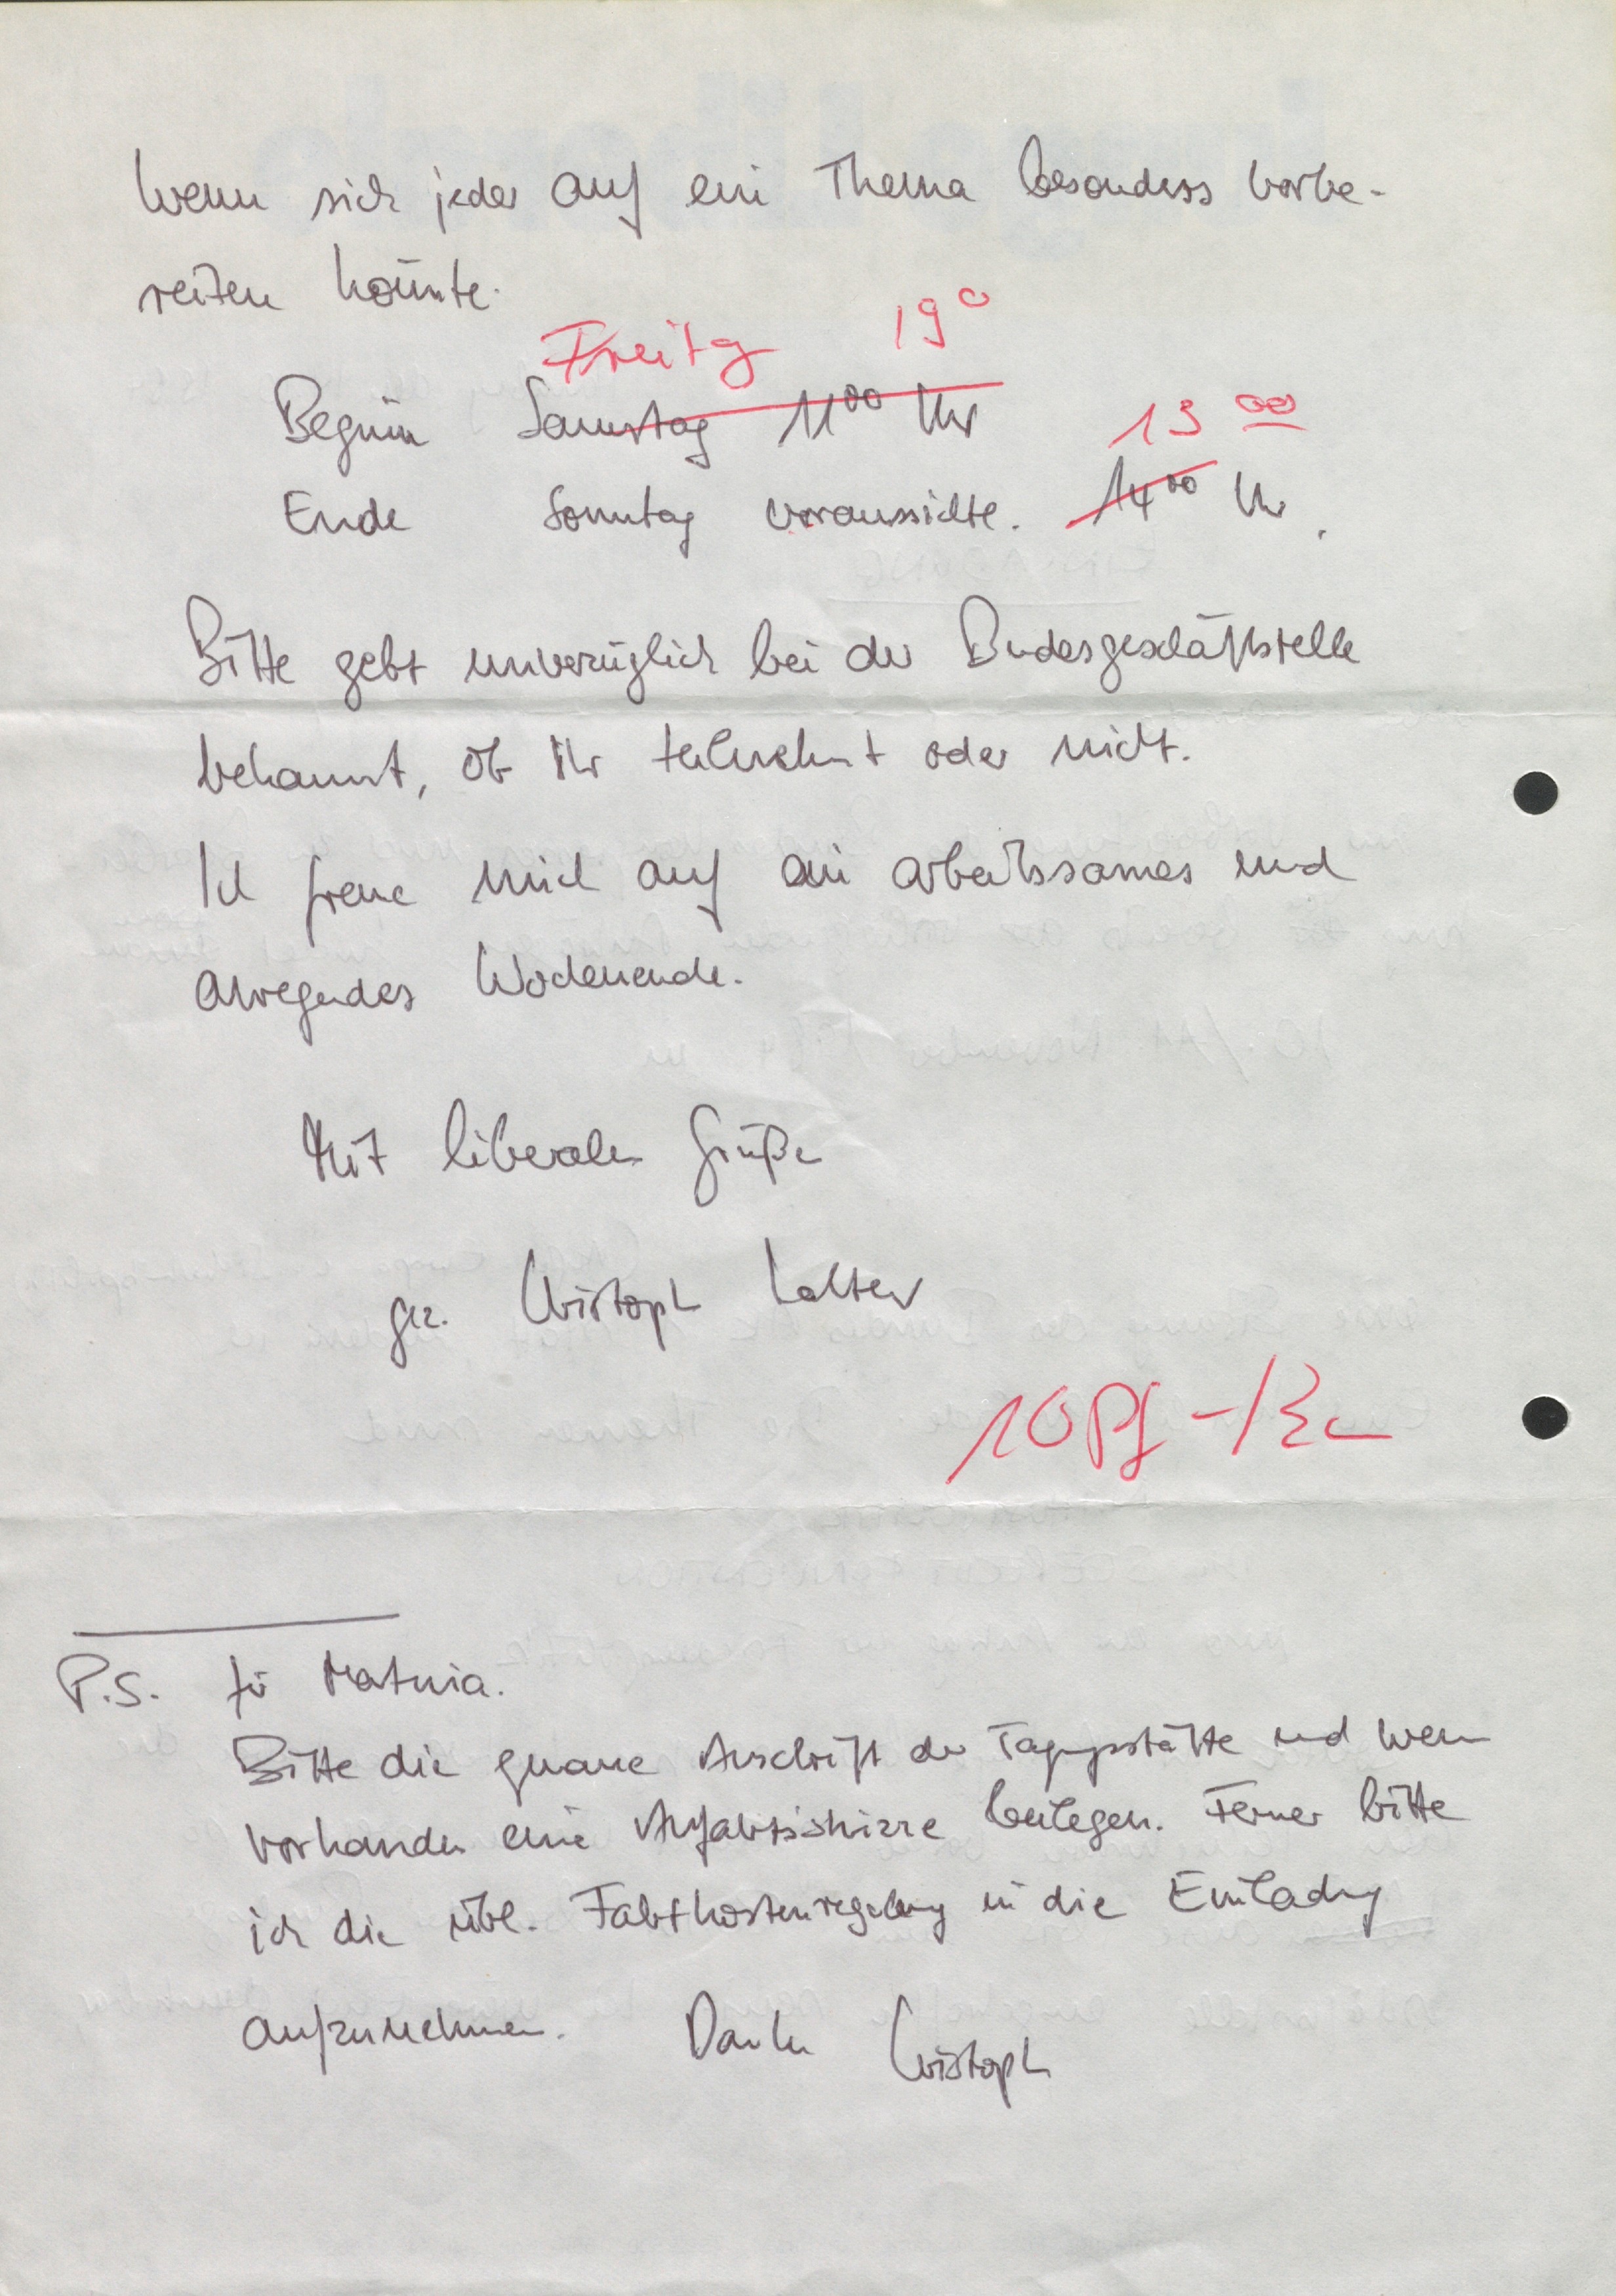 Wenn sich jeder auf ein Thema besonders vorbe-
reiten könnte.
Freitg 19°
Beginn Samstag 11⁰⁰ Uhr
13 ⁰⁰
Ende Sonntag voraussichtl. 14⁰⁰ Uhr.
Bitte gebt unverzüglich bei der Bundesgeschäftsstelle
bekannt, ob Ihr teilnehmt oder nicht.
Ich freue mich auf ein arbeitssames und
anregendes Wochenende.
Mit liberalen Grüßen
gez. Christoph
10 Pf
P.S. für
Bitte die genaue Anschrift der Tagungsstätte und wenn
vorhanden eine Anfahrtsskizze beilegen. Ferner bitte
ich die übl. Fahrtkostenregelung in die Einladung
aufzunehmen. Danke Christoph